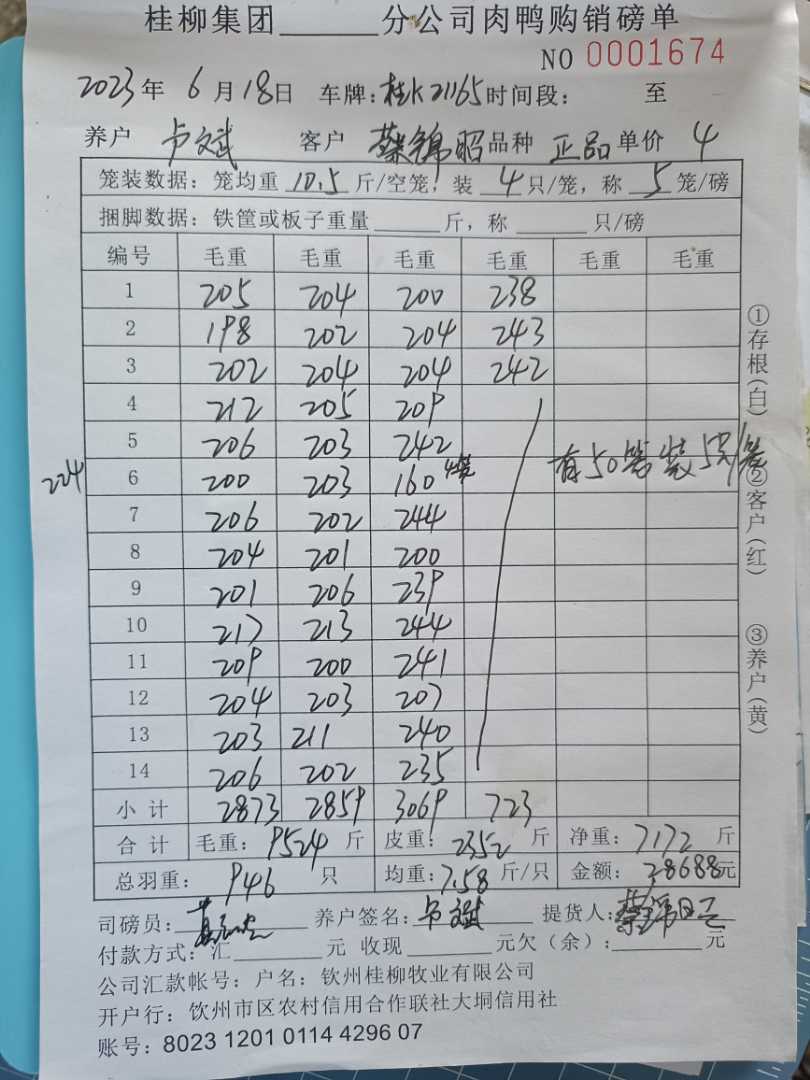 桂柳集团______分公司肉鸭购销磅单
NO 0001674
2023年 6月18日 车牌:桂K21165时间段: 至
养户 卢斌 客户 蔡锦昭 品种 正品 单价 4
笼装数据:笼均重 10.5 斤/空笼,装 4 只/笼,称 5 笼/磅
捆脚数据:铁筐或板子重量______斤,称______只/磅
编号 毛重 毛重 毛重 毛重 毛重 毛重
1 205 204 200 238
2 198 202 204 243
3 202 204 204 242
4 212 205 209
5 206 203 242 有50笼装5只/笼
224 6 200 203 160 4笼
7 206 202 244
8 204 201 200
9 201 206 239
10 217 213 244
11 209 200 241
12 204 203 207
13 203 211 240
14 206 202 235
小计 2873 2859 3069 723
合计 毛重:9524 斤 皮重:2352 斤 净重:7172 斤
总羽重:946 只 均重:7.58 斤/只 金额:28688元
司磅员: 养户签名:卢斌 提货人:
付款方式:汇______元 收现______元欠(余):______元
公司汇款帐号:户名:钦州桂柳牧业有限公司
开户行:钦州市区农村信用合作联社大垌信用社
账号:8023 1201 0114 4296 07
①存根(白)
②客户(红)
③养户(黄)